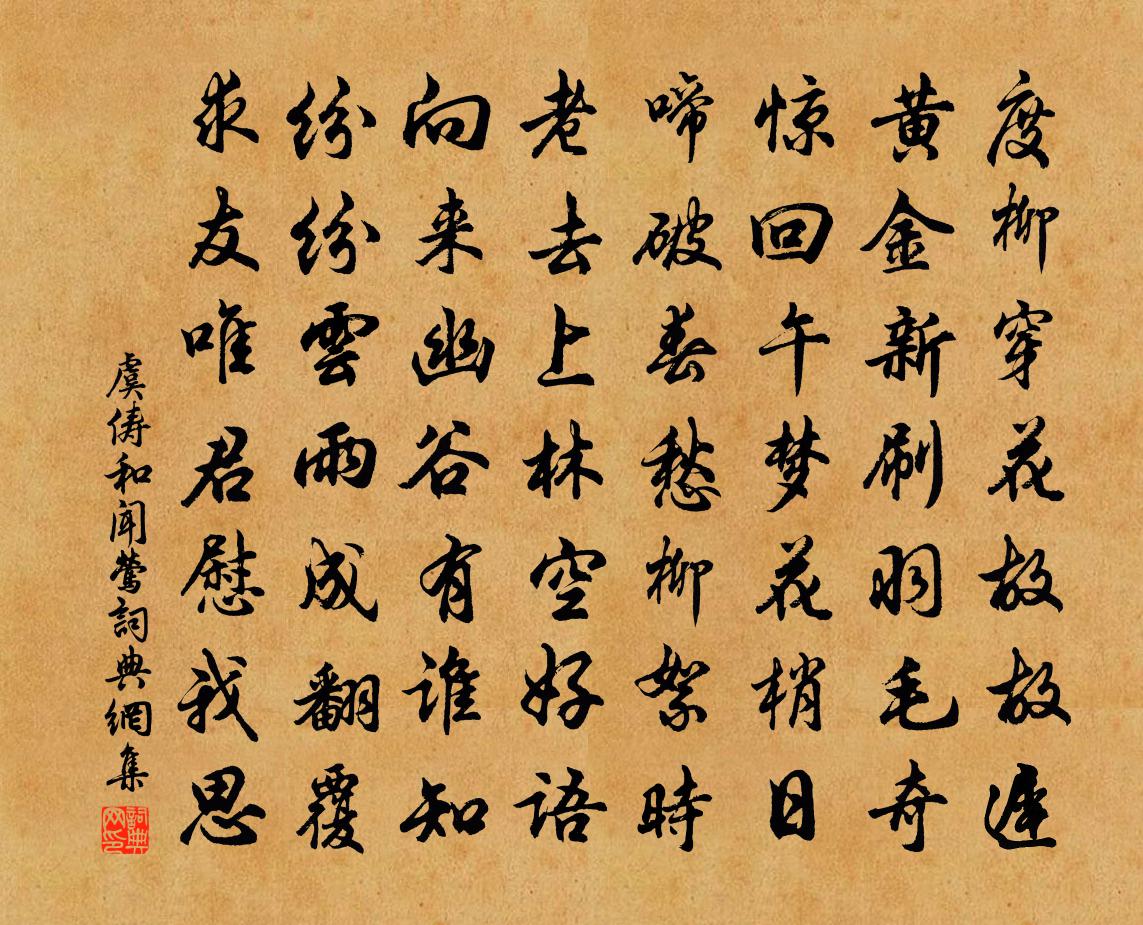 度柳穿花故故遲
黄金新刷羽毛奇
惊回午梦花梢日
啼破春愁柳絮時
老去上林空好語
向来幽谷有誰知
紛紛雲雨成翻覆
求友唯君慰我思
虞儔和闻莺詞典網集
詞典网印